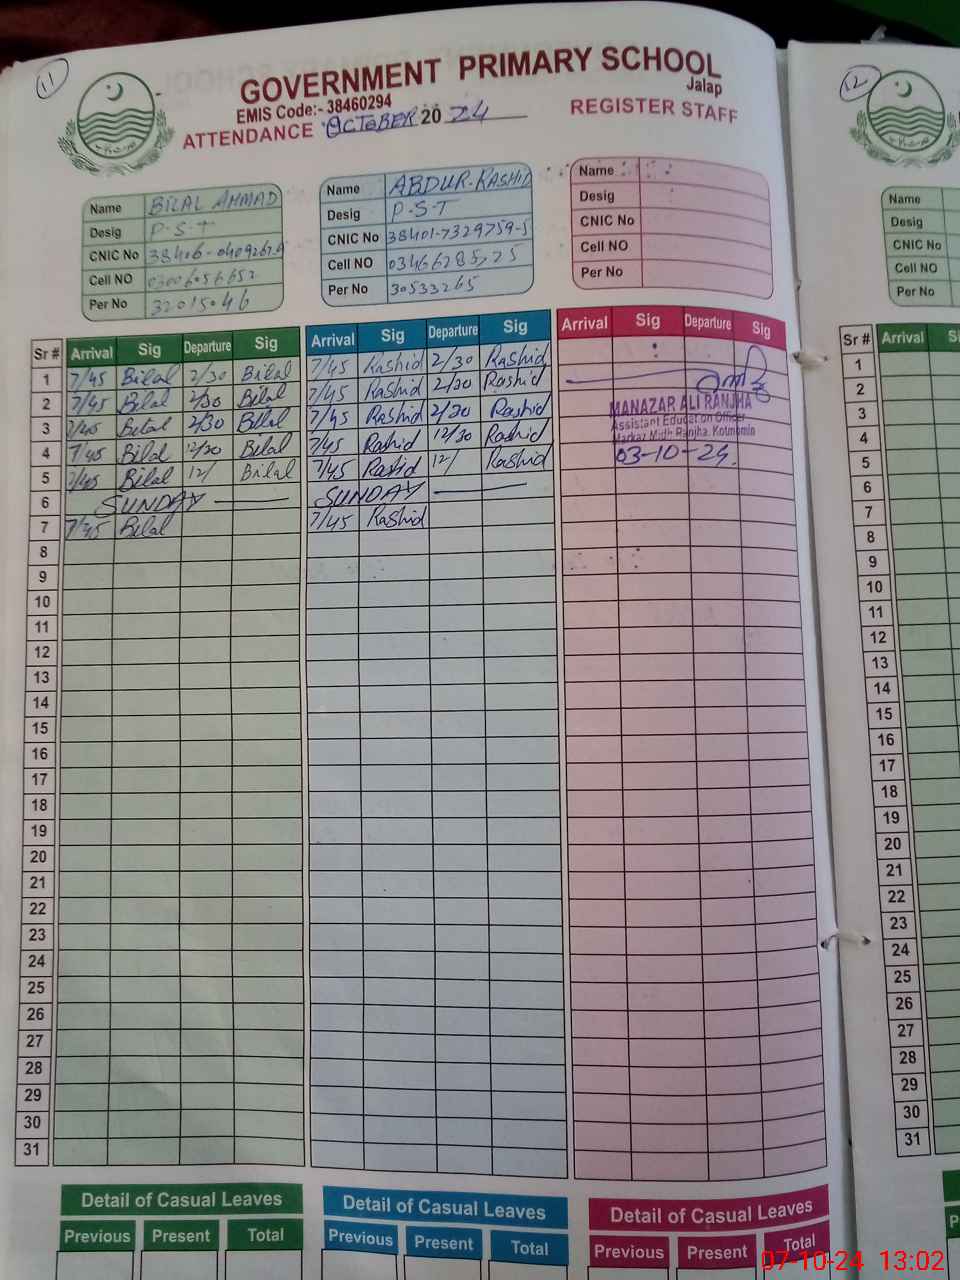 11
GOVERNMENT PRIMARY SCHOOL
Jalap
EMIS Code:- 38460294
ATTENDANCE OCTOBER 20 24 REGISTER STAFF
12
Name BILAL AHMAD
Desig P-S-T
CNIC No
Cell NO 03006056652
Per No 32015046
Name ABDUR-RASHID
Desig P-S-T
CNIC No 38401-7329759-5
Cell NO 03466285525
Per No 30533265
Name
Desig
CNIC No
Cell NO
Per No
Name
Desig
CNIC No
Cell NO
Per No
Sr # Arrival Sig Departure Sig Arrival Sig Departure Sig Arrival Sig Departure Sig
1 7/45 Bilal 2/30 Bilal 7/45 Rashid 2/30 Rashid
2 7/45 Bilal 2/30 Bilal 7/45 Rashid 2/30 Rashid
3 7/45 Bilal 2/30 Bilal 7/45 Rashid 2/30 Rashid
4 7/45 Bilal 12/30 Bilal 7/45 Rashid 12/30 Rashid
5 7/45 Bilal 12/ Bilal 7/45 Rashid 12/ Rashid
6 SUNDAY SUNDAY
7 7/45 Bilal 7/45 Rashid
MANAZAR ALI RANJHA
Assistant Education Officer
Markaz Midh Ranjha, Kotmomin
03-10-24.
8
9
10
11
12
13
14
15
16
17
18
19
20
21
22
23
24
25
26
27
28
29
30
31
Sr # Arrival
1
2
3
4
5
6
7
8
9
10
11
12
13
14
15
16
17
18
19
20
21
22
23
24
25
26
27
28
29
30
31
Detail of Casual Leaves Detail of Casual Leaves Detail of Casual Leaves
Previous Present Total Previous Present Total Previous Present Total
07-10-24 13:02